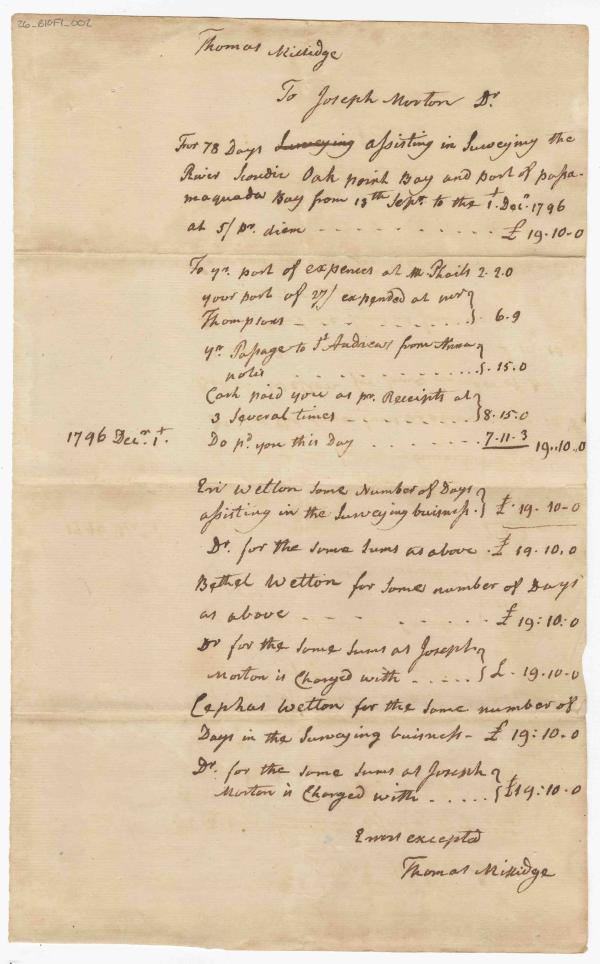 26_B10F1_002
Thomas Millidge
To Joseph Morton Dr.
For 78 Days Surveying assisting in Surveying the
River Scoudic Oak point Bay and part of passa-
maquada Bay from 13th Sept. to the 1t. Decr. 1796
at 5/ Pr. diem - - - - - - - - - - £ 19-10-0
To yr. part of expences at McPhails 2-2.0
your part of 27/ expended at mr
Thompsons - - - - - - - - - - 6-9
yr. Passage to St Andrews from Anna
polis - - - - - - - - - - 15.0
Cash paid you as pr. Receipts at
3 Several times - - - - - - 8.15.0
1796 Decr. 1t. Do pd. you this Day - - - - - - 7-11-3 19..10..0
Eri Wetton Same Number of Days
assisting in the Surveying buisness. £ 19-10-0
Dr. for the same Sums as above - £ 19.10.0
Bethel Wetton for Same number of Days
as above - - - - - - £ 19:10:0
Dr for the same Sums as Joseph
Morton is Charged with - - - - - £ - 19.10-0
Cephas Wetton for the Same number of
Days in the Surveying buisness - £ 19:10.0
Dr. for the same Sums as Joseph
Morton is Charged with - - - - - £19:10.0
Errors excepted
Thomas Millidge